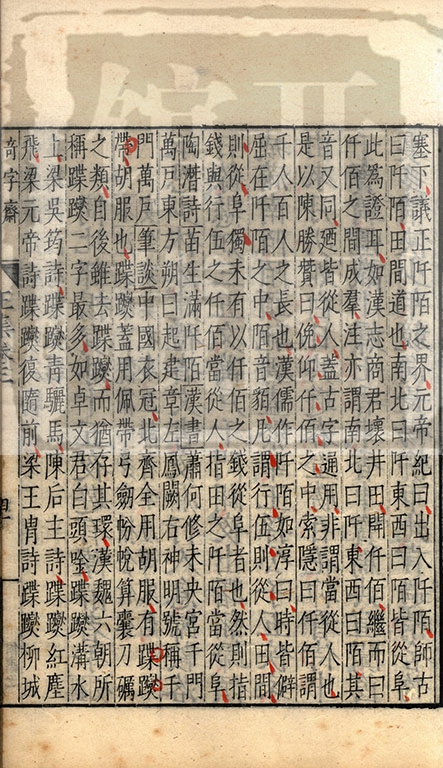 塞下議正阡陌之界元帝紀曰出入阡陌師古
曰阡陌田間道也南北曰阡東西曰陌皆從阜
此為證耳如漢志商君壞井田開仟佰繼而曰
仟佰之間成羣注亦謂南北曰阡東西曰陌其
音又同廼皆從人蓋古字通用非謂當從人也
是以陳勝贊曰俛仰仟佰之中索隱曰仟佰謂
千人百人之長也漢儒作阡陌如淳曰時皆僻
屈在阡陌之中陌音貊凡謂行伍則從人田間
則從阜獨未有以仟佰之錢從阜者也然則指
錢與行伍之仟佰當從人指田之阡陌當從阜
陶潛詩苗生滿阡陌漢書蕭何修未央宮千門
萬戶東方朔曰起建章左鳳闕右神明號稱千
門萬戶筆談中國衣冠北齊全用胡服有蹀躞
帶胡服也蹀躞蓋用佩帶弓劒帉帨算囊刀礪
之類自後雖去蹀躞而猶存其環漢魏六朝所
稱蹀躞二字最多如卓文君白頭唫蹀躞溝水
上梁吳筠詩蹀躞青驪馬陳后主詩蹀躞紅塵
飛梁元帝詩蹀躞復隨前梁王冑詩蹀躞柳城
奇字齋